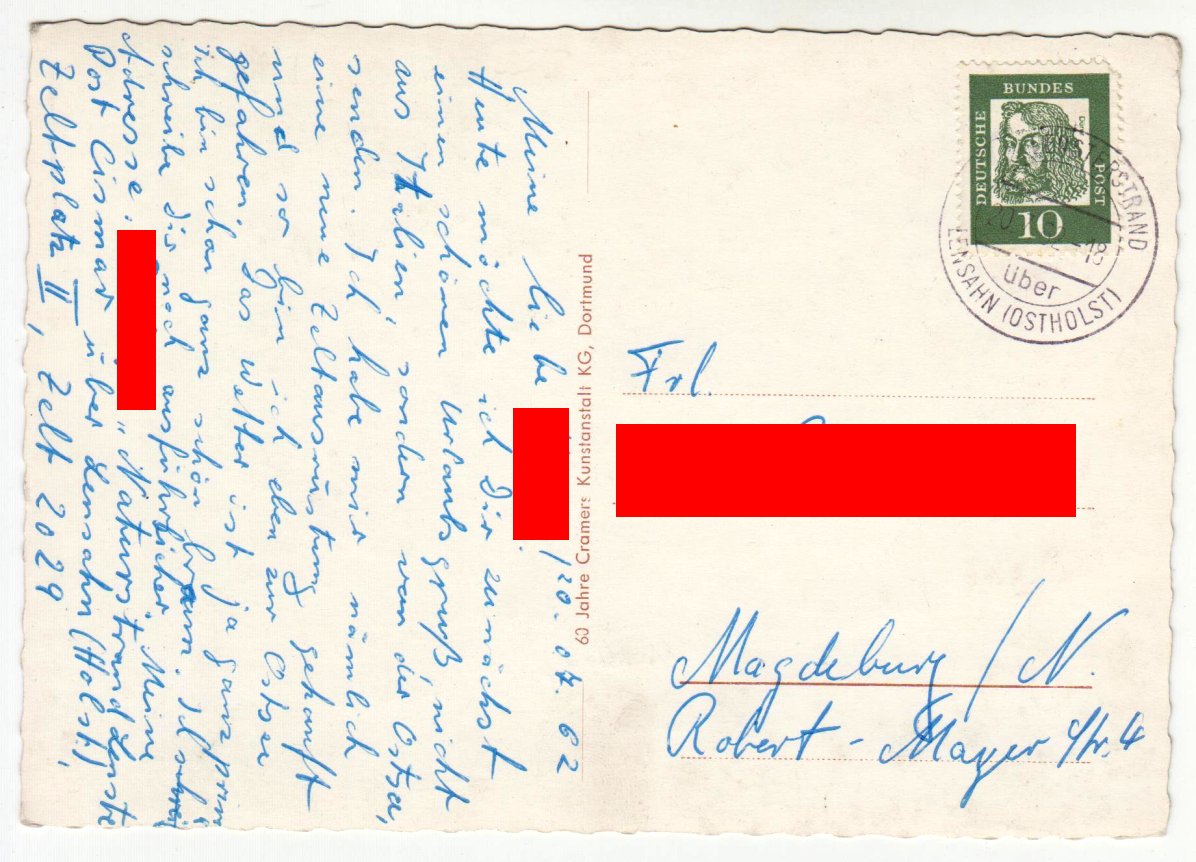 Meine liebe
120. 07. 62
Heute möchte ich Dir zunächst
einen schönen Urlaubsgruß, nicht
aus Italien, sondern von der Ostsee,
senden. Ich habe mir nämlich
eine neue Zeltausrüstung gekauft
und so bin ich eben zur Ostsee
gefahren. Das Wetter ist ja ganz prima
ich bin schon ganz schön braun. Ich
schreibe Dir noch ausführlicher. Meine
Adresse: "Naturstrand Lenste
Post Cismar über Lensahn (Holst),
Zeltplatz II, Zelt 2029
60 Jahre Cramers Kunstanstalt KG, Dortmund
DEUTSCHE
BUNDES
POST
10
20
-18
über
LENSAHN (OSTHOLST)
Frl.
Magdeburg / N.
Robert-Mayer Str. 4